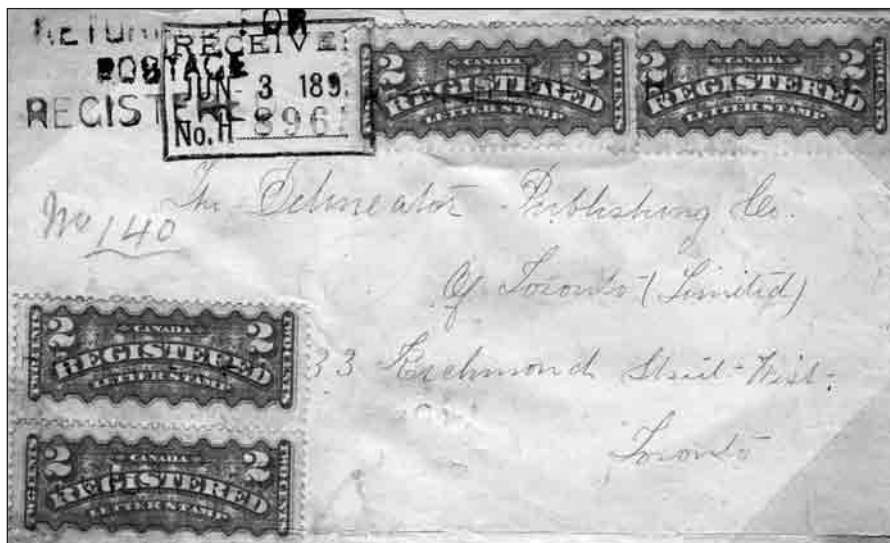 RETURN FOR
POSTAGE
REGISTERE
RECEIVE
JUN 3 189
No. H 896
2 CANADA 2
REGISTERED
LETTER STAMP
TWO CENTS
2 CANADA 2
REGISTERED
LETTER STAMP
TWO CENTS
No 140
The Delineator Publishing Co.
Of Toronto (Limited)
33 Richmond Street West
Toronto
2 CANADA 2
REGISTERED
LETTER STAMP
TWO CENTS
2 CANADA 2
REGISTERED
LETTER STAMP
TWO CENTS